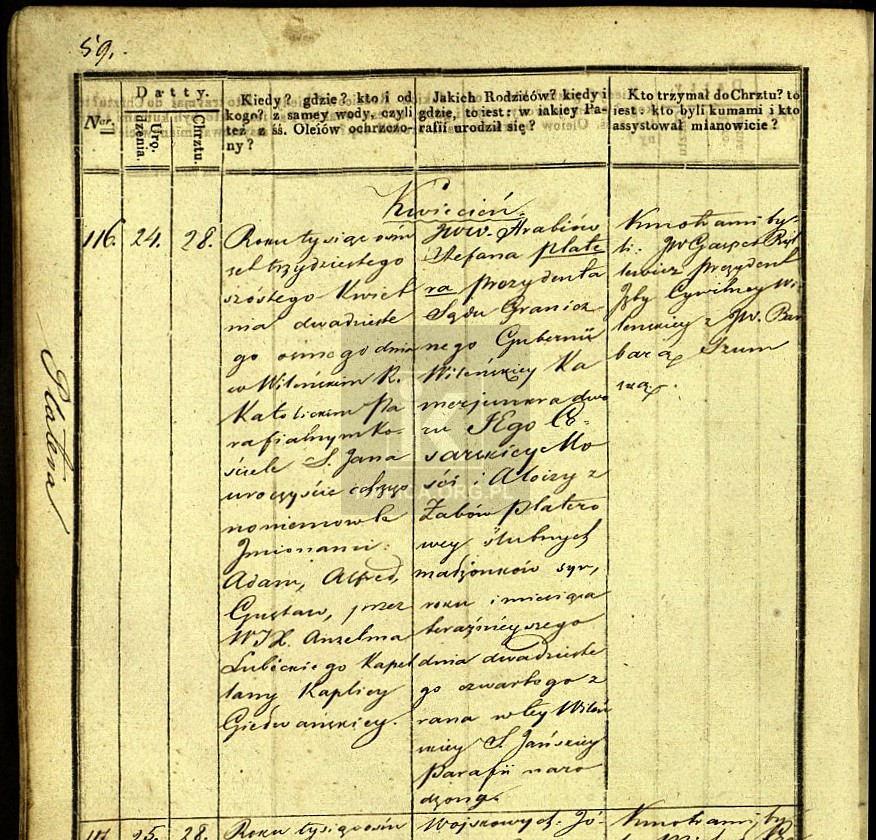 59.
Nor.
Datty.
Uro-
dzenia.
Chrztu.
Kiedy? gdzie? kto i od
kogo? z samey wody, czyli
też z śś. Oleiów ochrzczo-
ny?
Jakich Rodziców? kiedy i
gdzie, to iest: w iakiey Pa-
rafii urodził się?
Kto trzymał do Chrztu? to
iest: kto byli kumami i kto
assystował mianowicie?
Kwiecień.
Platera
116. 24. 28.
Roku tysiąc ośm
set trzydziestego
szóstego Kwiet
nia dwadzieste
go osmego dnia
w Wileńskim R.
Katolickim Pa
rafialnym Ko-
ściele S. Jana
uroczyście ochrzczo
no niemowle
Jmionami:
Adam, Alfred,
Gustaw, przez
WJX. Anzelma
Lubickiego Kapel
lany Kaplicy
Giedwańskiey.
JWW. Hrabiów
Stefana Plate
ra prezydenta
Sądu Granicz-
nego Gubernii
Wileńskiey Ka
merjunkra dwo
ru JEgo Ce-
sarskiey Mo
ści i Aloizy z
Żabów Platero
wey ślubnych
małżonków syn,
roku i miesiąca
teraźnieyszego
dnia dwadzieste
go czwartego z
rana w tey Wileń
skiey S. Jańskiey
Parafii naro
dzony.
Kmotrami by-
li: JW Gasper
prezydent
Jzby Cywilney Wi-
leńskiey z JW. Bar
barą Szum
ską.
117. 25. 28.
Roku tysiąc ośm
Woyskowych. Jó-
Kmotrami by
WWW.GENEALODZY.PL